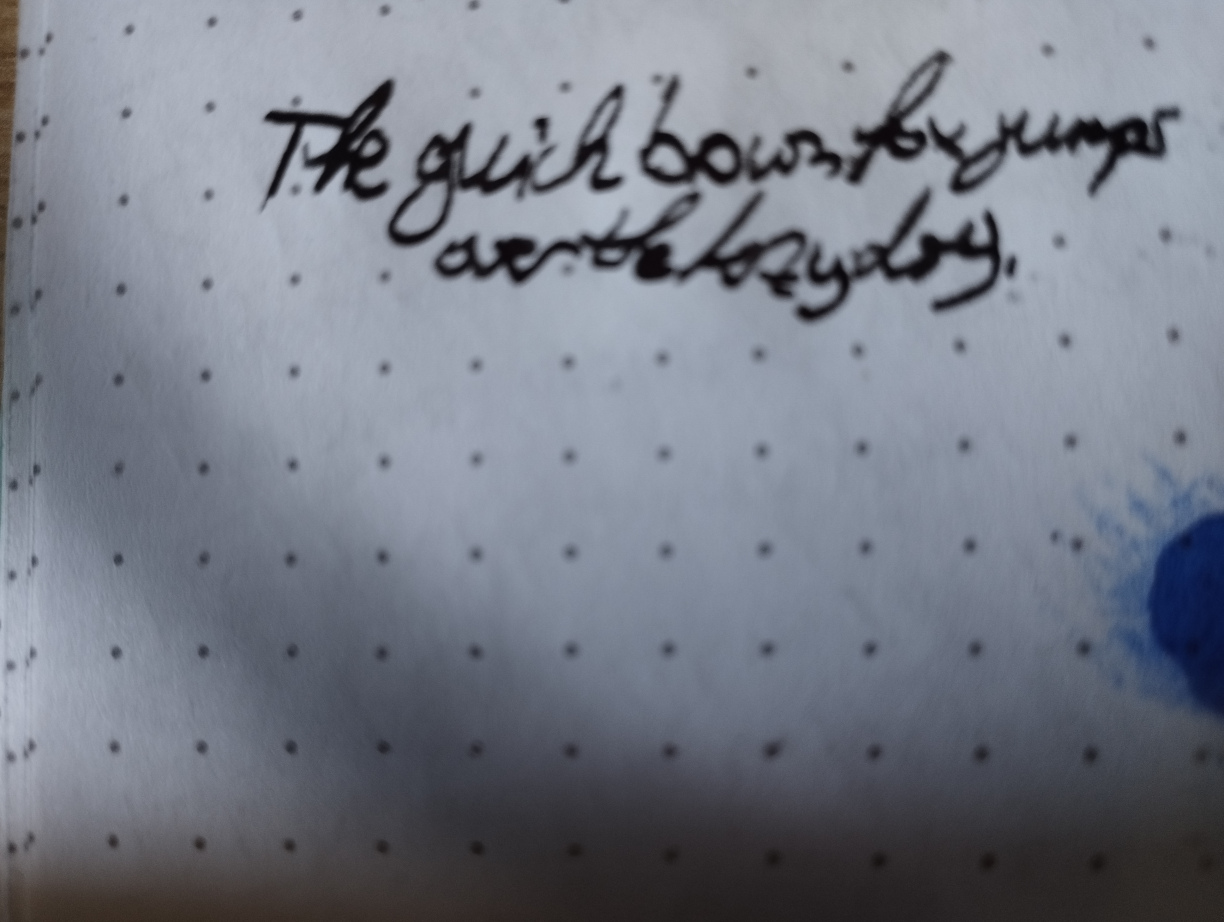 The quick bown fox jumps
over the lazy dog.